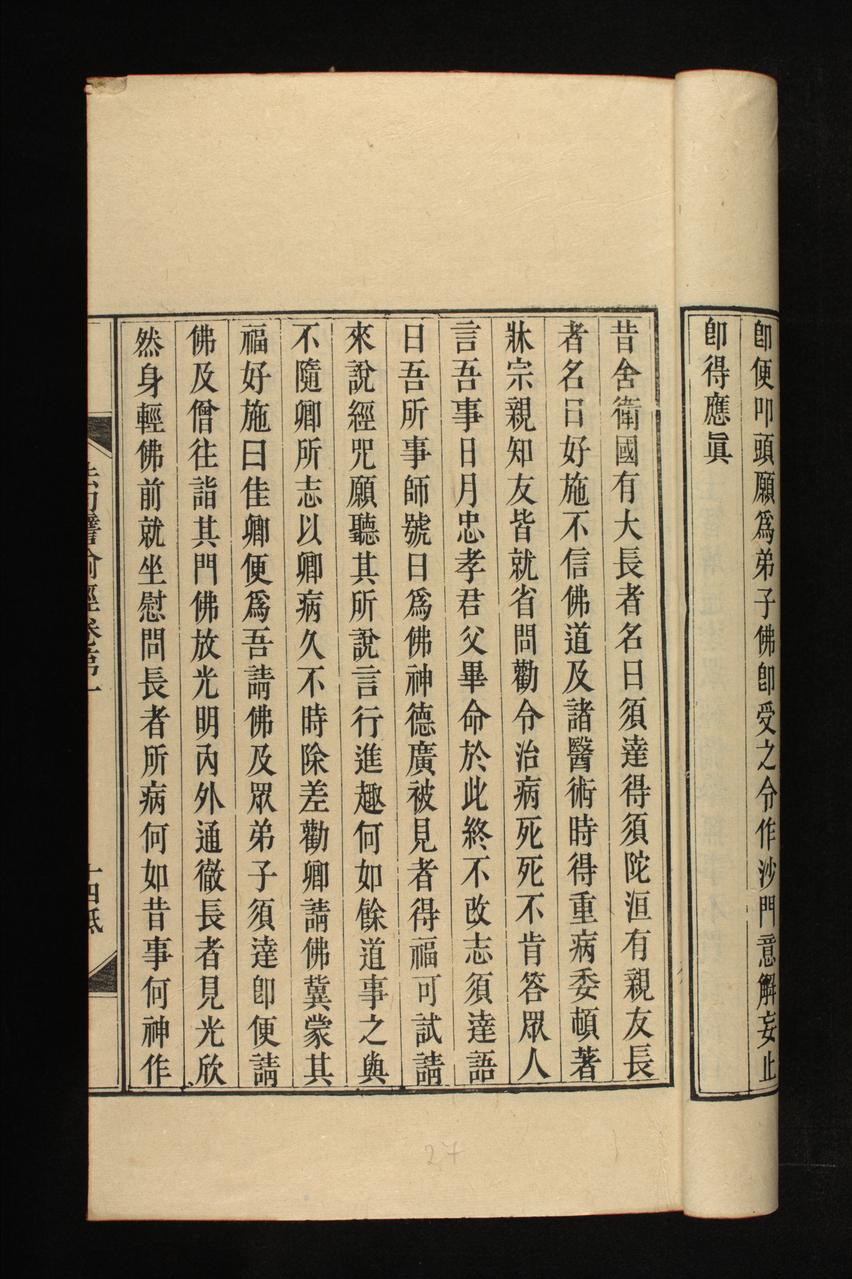 卽便叩頭願爲弟子佛卽受之令作沙門意解妄止
卽得應眞
昔舍衛國有大長者名曰須達得須陀洹有親友長
者名曰好施不信佛道及諸醫術時得重病委頓著
牀宗親知友皆就省問勸令治病死死不肯答眾人
言吾事日月忠孝君父畢命於此終不改志須達語
曰吾所事師號曰爲佛神德廣被見者得福可試請
來說經咒願聽其所說言行進趣何如餘道事之與
不隨卿所志以卿病久不時除差勸卿請佛冀蒙其
福好施曰佳卿便爲吾請佛及眾弟子須達卽便請
佛及僧往詣其門佛放光明內外通徹長者見光欣
然身輕佛前就坐慰問長者所病何如昔事何神作
法句譬喻經卷第一
十四紙
27